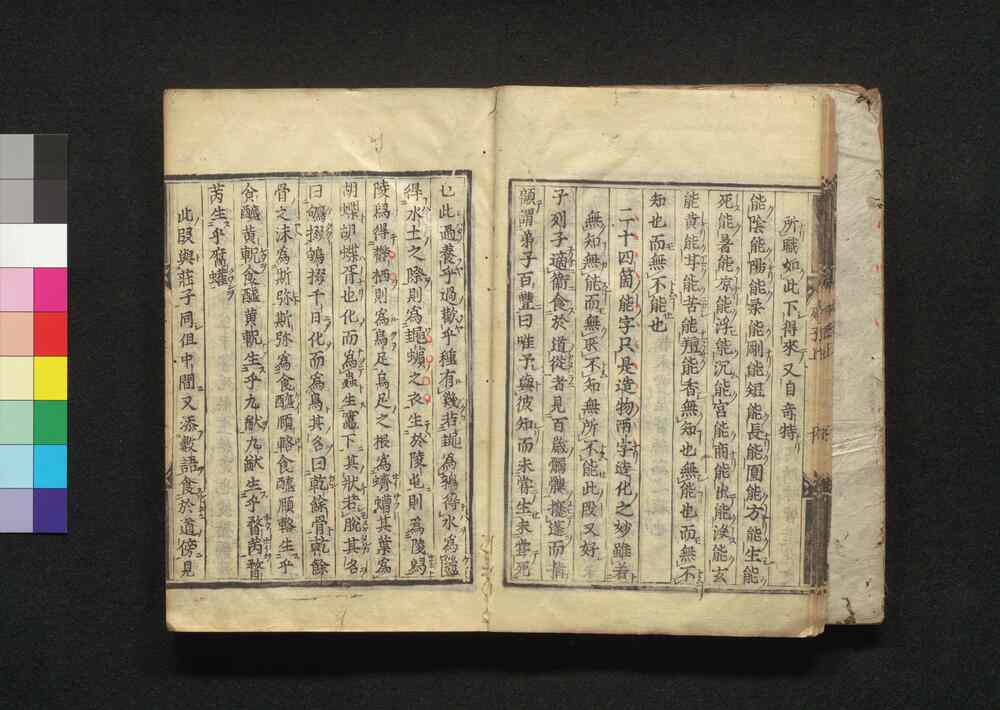 所職如此下得來又自奇特
能陰能陽能柔能剛能短能長能圓能方能生能
死能暑能凉能浮能沉能宮能商能出能沒能玄
能黃能甘能苦能羶能香無知也無能也而無不
知也而無不能也
二十四箇能字只是造物兩字造化之妙雖若
無知無能而無所不知無所不能此段又好
子列子適衛食於道從者見百歲髑髏攓蓬而
顧謂弟子百豐曰唯予與彼知而未嘗生未嘗死
也此過養乎過歡乎種有幾若䵷為鶉得水為㡭
得水土之際則為䵷蠙之衣生於陵屯則為陵舄
陵舄得鬱栖則為烏足烏足之根為蠐螬其葉為
胡蝶胡蝶胥也化而為蟲生竈下其狀若脫其名
曰鴝掇鴝掇千日化而為鳥其名曰乾餘骨乾餘
骨之沫為斯弥斯弥為食醯頤輅食醯頤輅生乎
食醯黃軦食醯黃軦生乎九猷九猷生乎瞀芮瞀
芮生乎腐蠸
此段與莊子同但中間又添數語食於道傍見